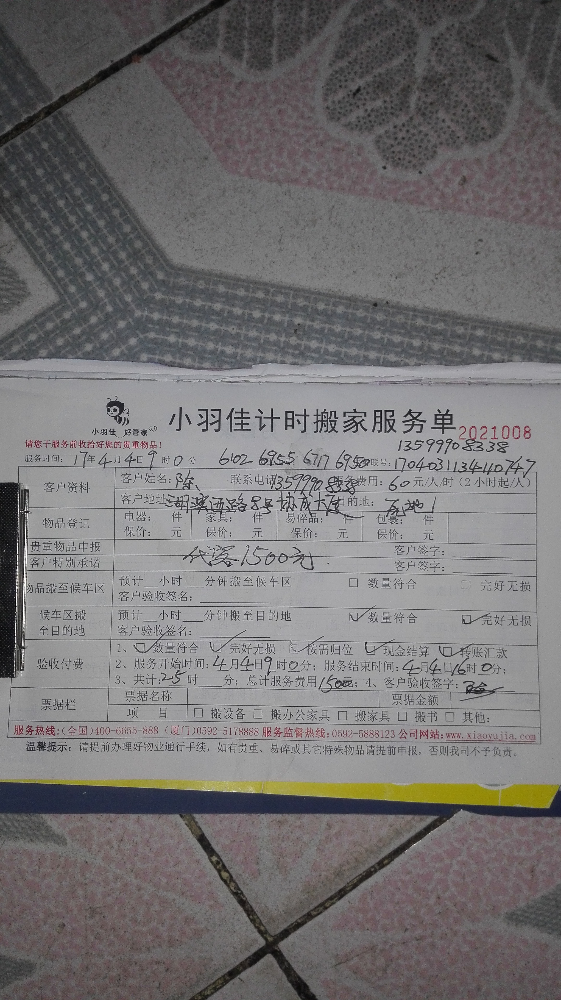 小羽佳 好管家
小羽佳计时搬家服务单 2021008
请您于服务前收拾好您的贵重物品!
13599908338
服务时间: 17年4月4日9时0分 6102 6955 6717 6950 170403113440747
客户资料 客户姓名: 陈 联系电话 服务费用: 60元/人/时(2小时起/人)
客户地址: 湖滨西路8号协成大厦 目的地: 原地
物品登记 电器: 件 家具: 件 易碎品: 件 包装: 件
保价: 元 保价: 元 保价: 元 保价: 元
贵重物品申报 客户签字:
客户特别承诺 代络1500元 客户签字:
物品搬至候车区 预计 小时 分钟搬至候车区 □ 数量符合 □ 完好无损
客户验收签名:
候车区搬至目的地 预计 小时 分钟搬至目的地 数量符合 完好无损
客户验收签名:
验收付费 1、数量符合 完好无损 按需归位 现金结算 转账汇款
2、服务开始时间: 4月4日9时0分; 服务结束时间: 4月4日16时0分;
3、共计: 25时 分; 总计服务费用1500; 4、客户验收签字:
票据栏 票据名称 票据金额
项 目 □ 搬设备 □ 搬办公家具 □ 搬家具 □ 搬书 □ 其他:
服务热线:(全国)400-6655-888 (厦门)0592-5178888 服务监督热线:0592-5888123 公司网站:www.xiaoyujia.com
温馨提示: 请提前办理好物业通行手续, 如有贵重、易碎或其它特殊物品请提前申报, 否则我司不予负责。